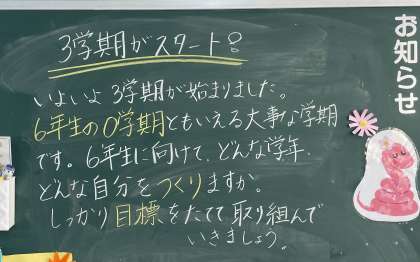 3学期がスタート!
いよいよ 3学期が始まりました。
6年生の0学期ともいえる大事な学期
です。6年生に向けて、どんな学年、
どんな自分をつくりますか。
しっかり目標をたてて取り組んで
いきましょう。
お知らせ